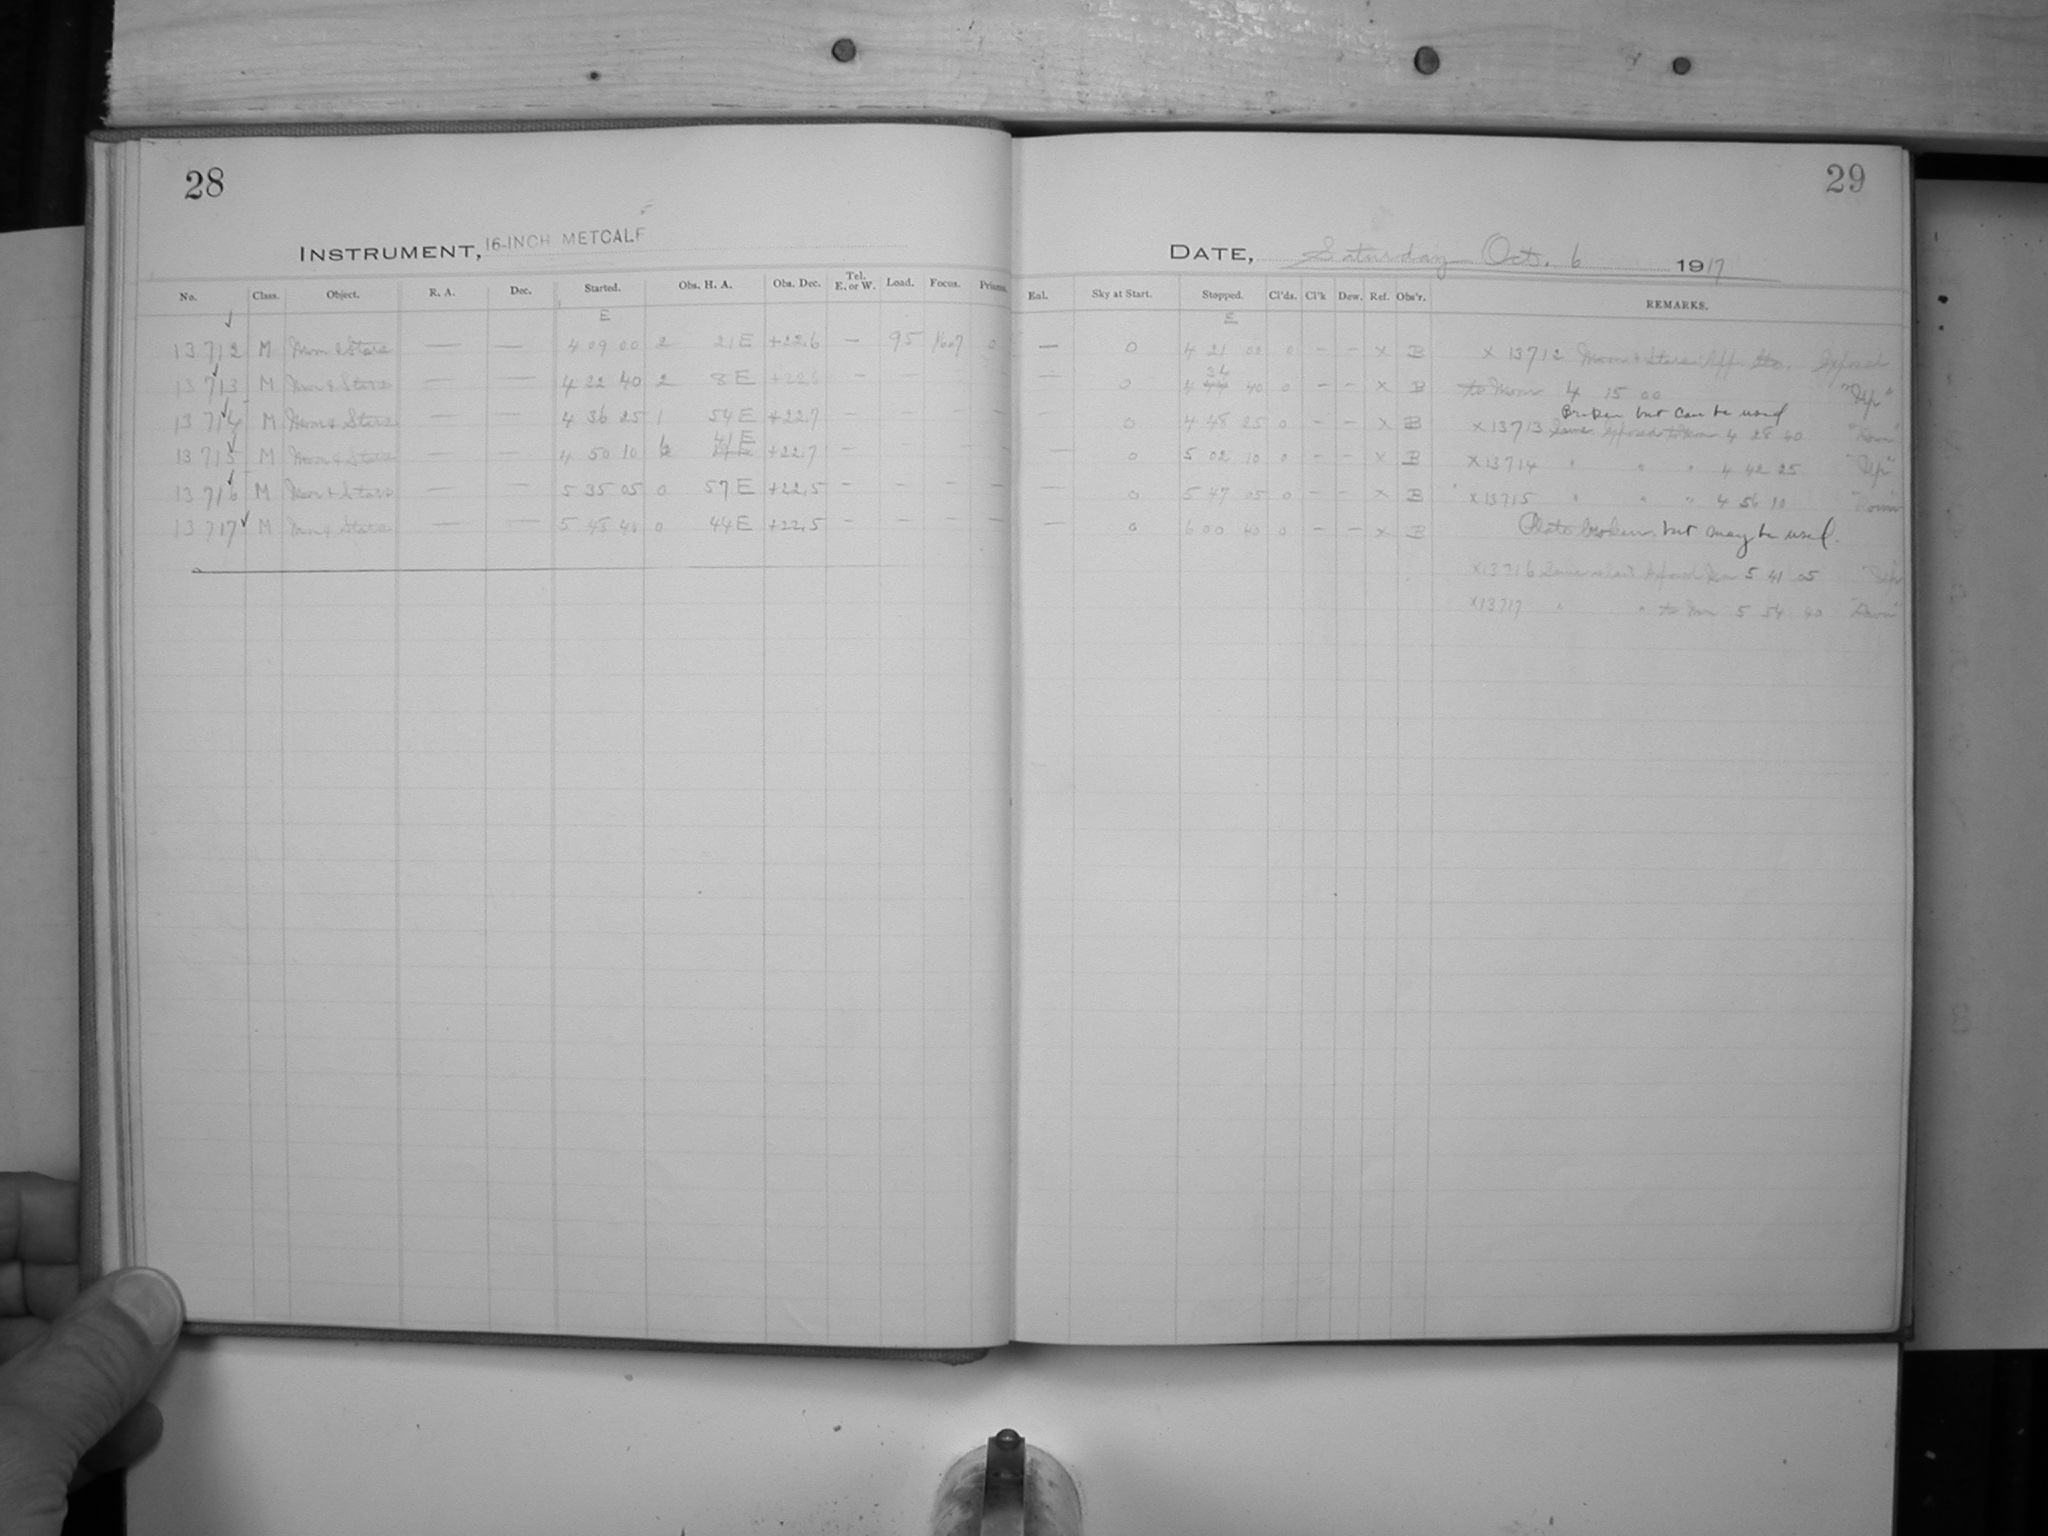 28
29
INSTRUMENT, 16-INCH METCALF
DATE, Saturday Oct. 6 1917
No. Class. Object. R. A. Dec. Started. Obs. H. A. Obs. Dec. Tel. E. or W. Load. Focus. Prisms.
Sky at Start. Stopped. Cl'ds. Cl'k Dew. Ref. Obs'r. REMARKS.
E
E
13712 M Moon & Stars — — 4 09 00 2 21 E +22.6 — 95 0 — 0 4 21 00 0 — — x B x 13712 Moon & Stars Exposed
13713 M Moon & Stars — — 4 22 40 2 8 E +22.6 — — — — — 0 4 34 40 0 — — x B to Moon 4 15 00 "Up"
Broken but can be used
13714 M Moon & Stars — — 4 36 25 1 54 E +22.7 — — — — — 0 4 48 25 0 — — x B x 13713 Same Exposed to Moon 4 28 40 "Down"
13715 M Moon & Stars — — 4 50 10 41 E +22.7 — — — — — 0 5 02 10 0 — — x B x 13714 " " " 4 42 25 "Up"
13716 M Moon & Stars — — 5 35 05 0 57 E +22.5 — — — — — 0 5 47 05 0 — — x B x 13715 " " " 4 56 10 "Down"
13717 M Moon & Stars — — 5 48 40 0 44 E +22.5 — — — — — 0 6 00 40 0 — — x B Plate broken but may be used.
x 13716 Same Exposed 5 41 05 "Up"
x 13717 " " to Moon 5 54 40 "Down"